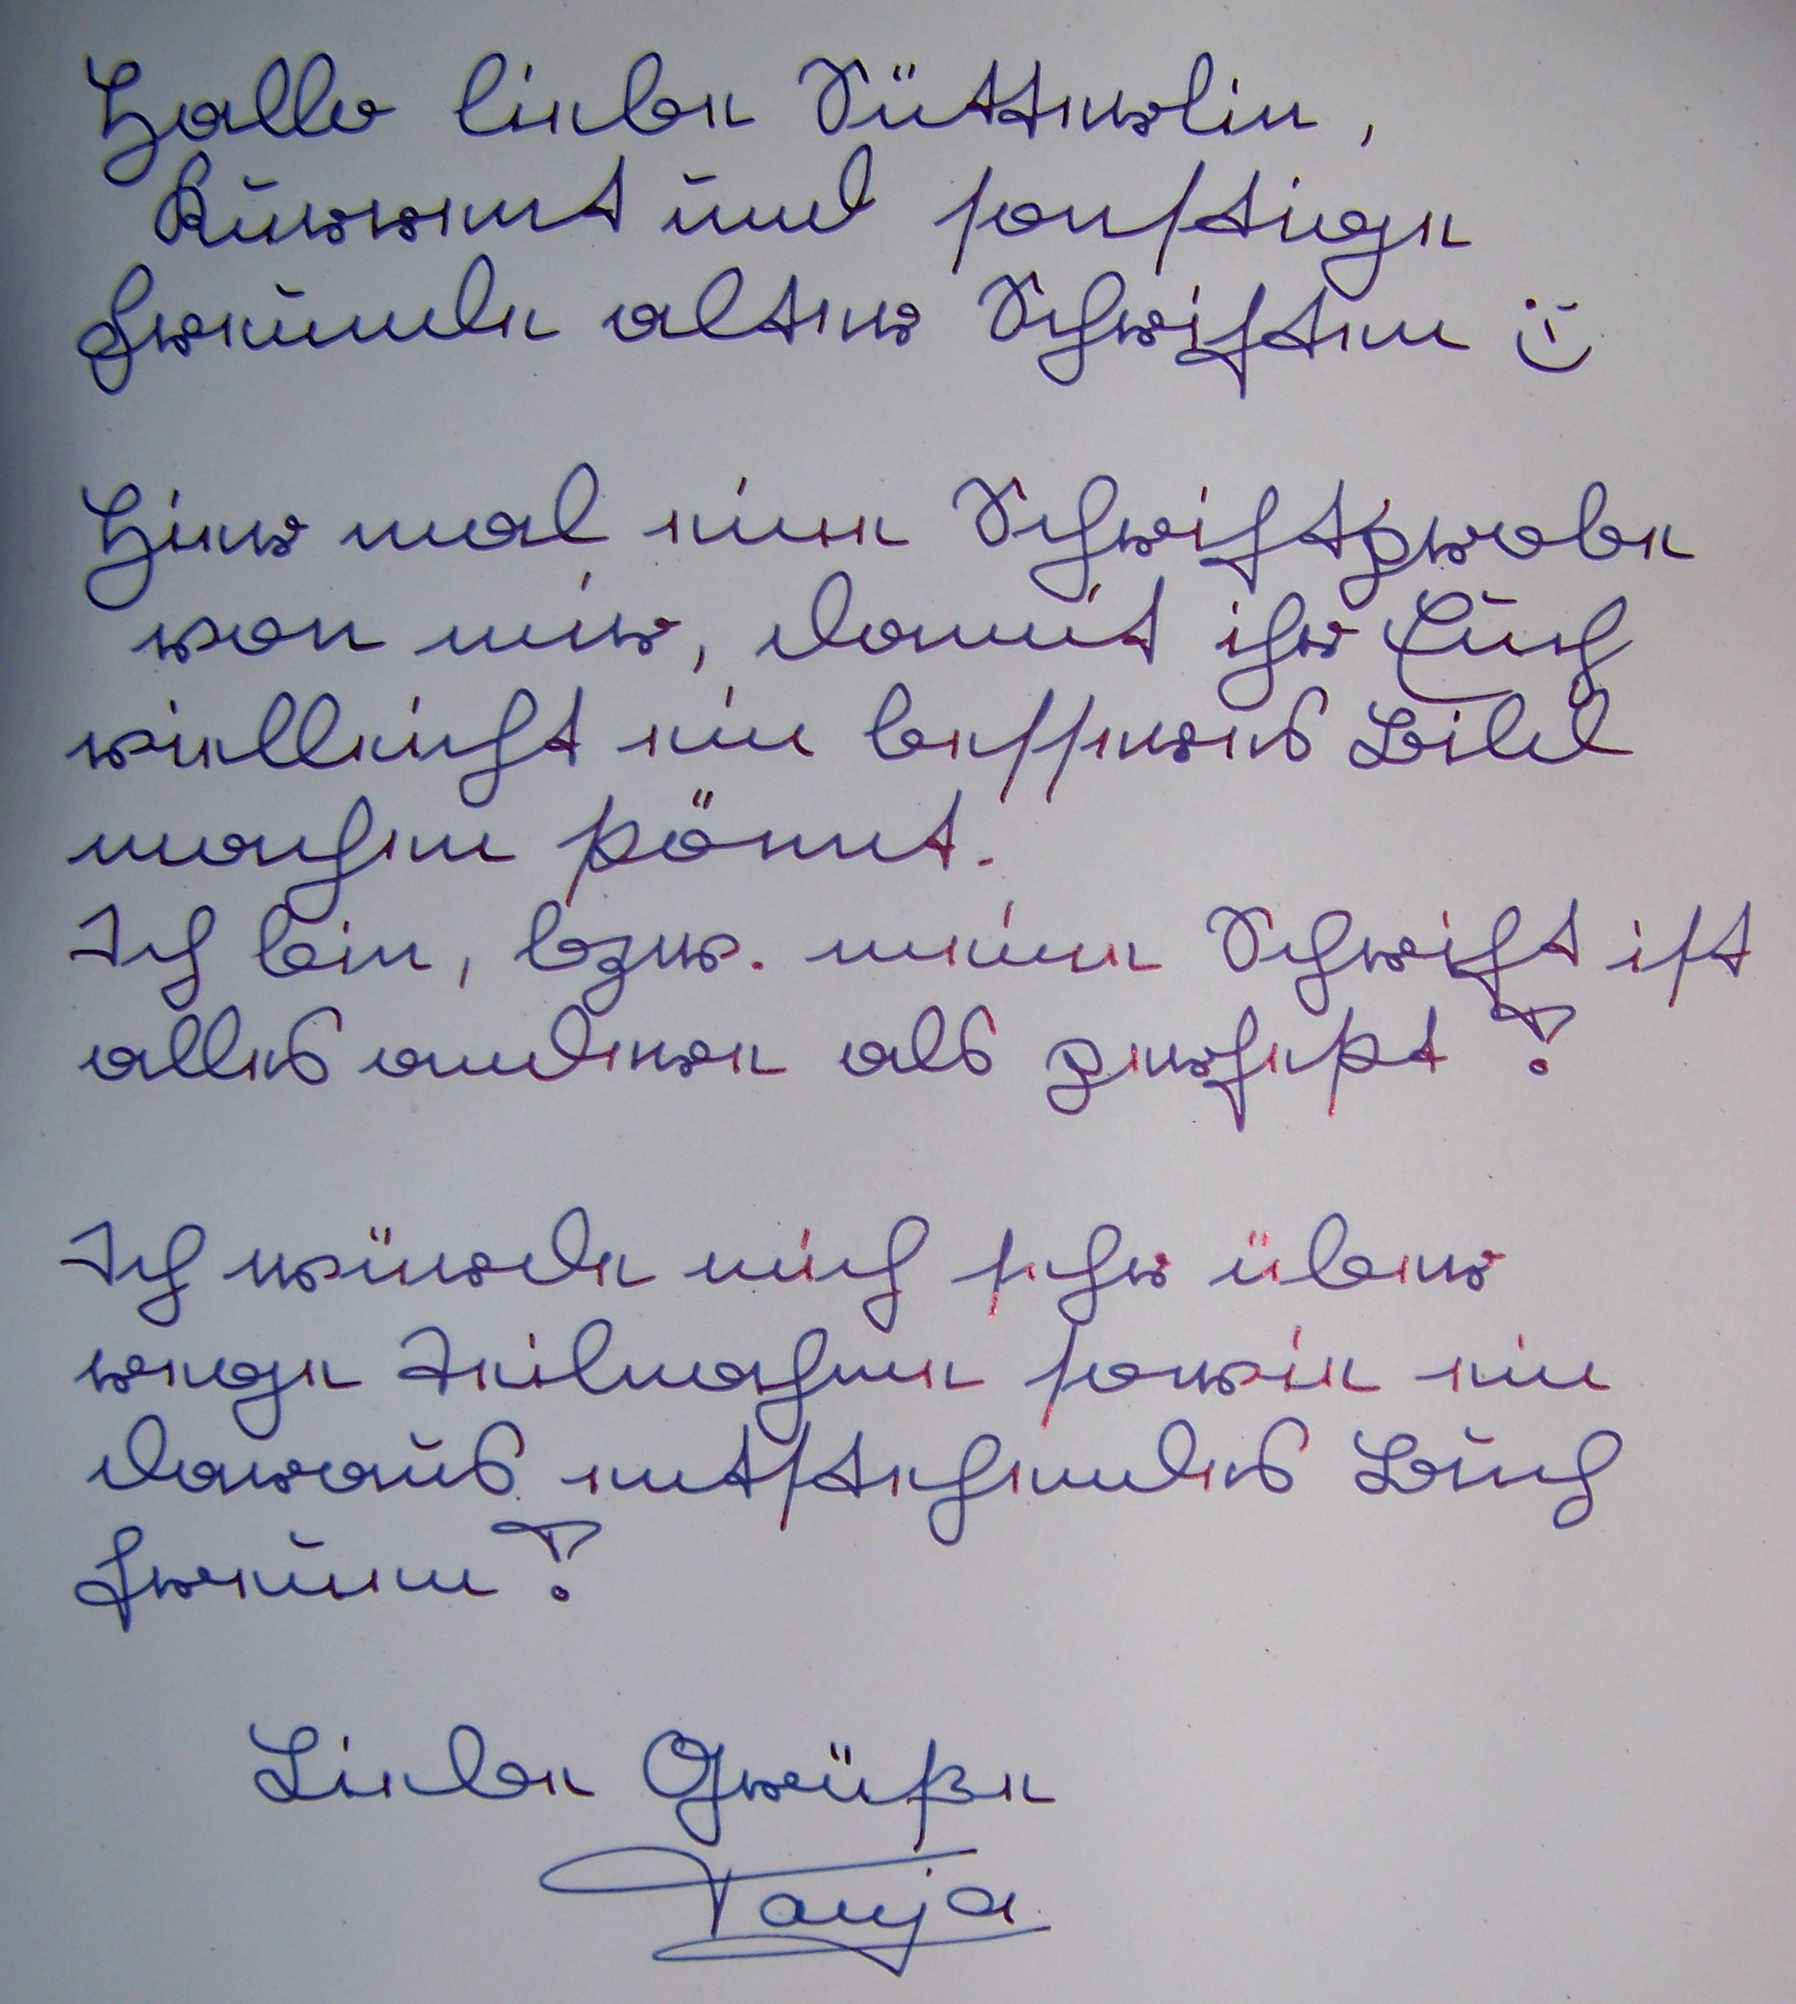 Hallo liebe Sütterlin,
Kurrent und sonstige
Freunde alter Schriften :-)
Hier mal eine Schriftprobe
von mir, damit ihr Euch
vielleicht ein besseres Bild
machen könnt.
Ich bin, bzw. meine Schrift ist
alles andere als perfekt!
Ich würde mich sehr über
rege Teilnahme sowie ein
daraus entstehendes Buch
freuen!
Liebe Grüße
Tanja